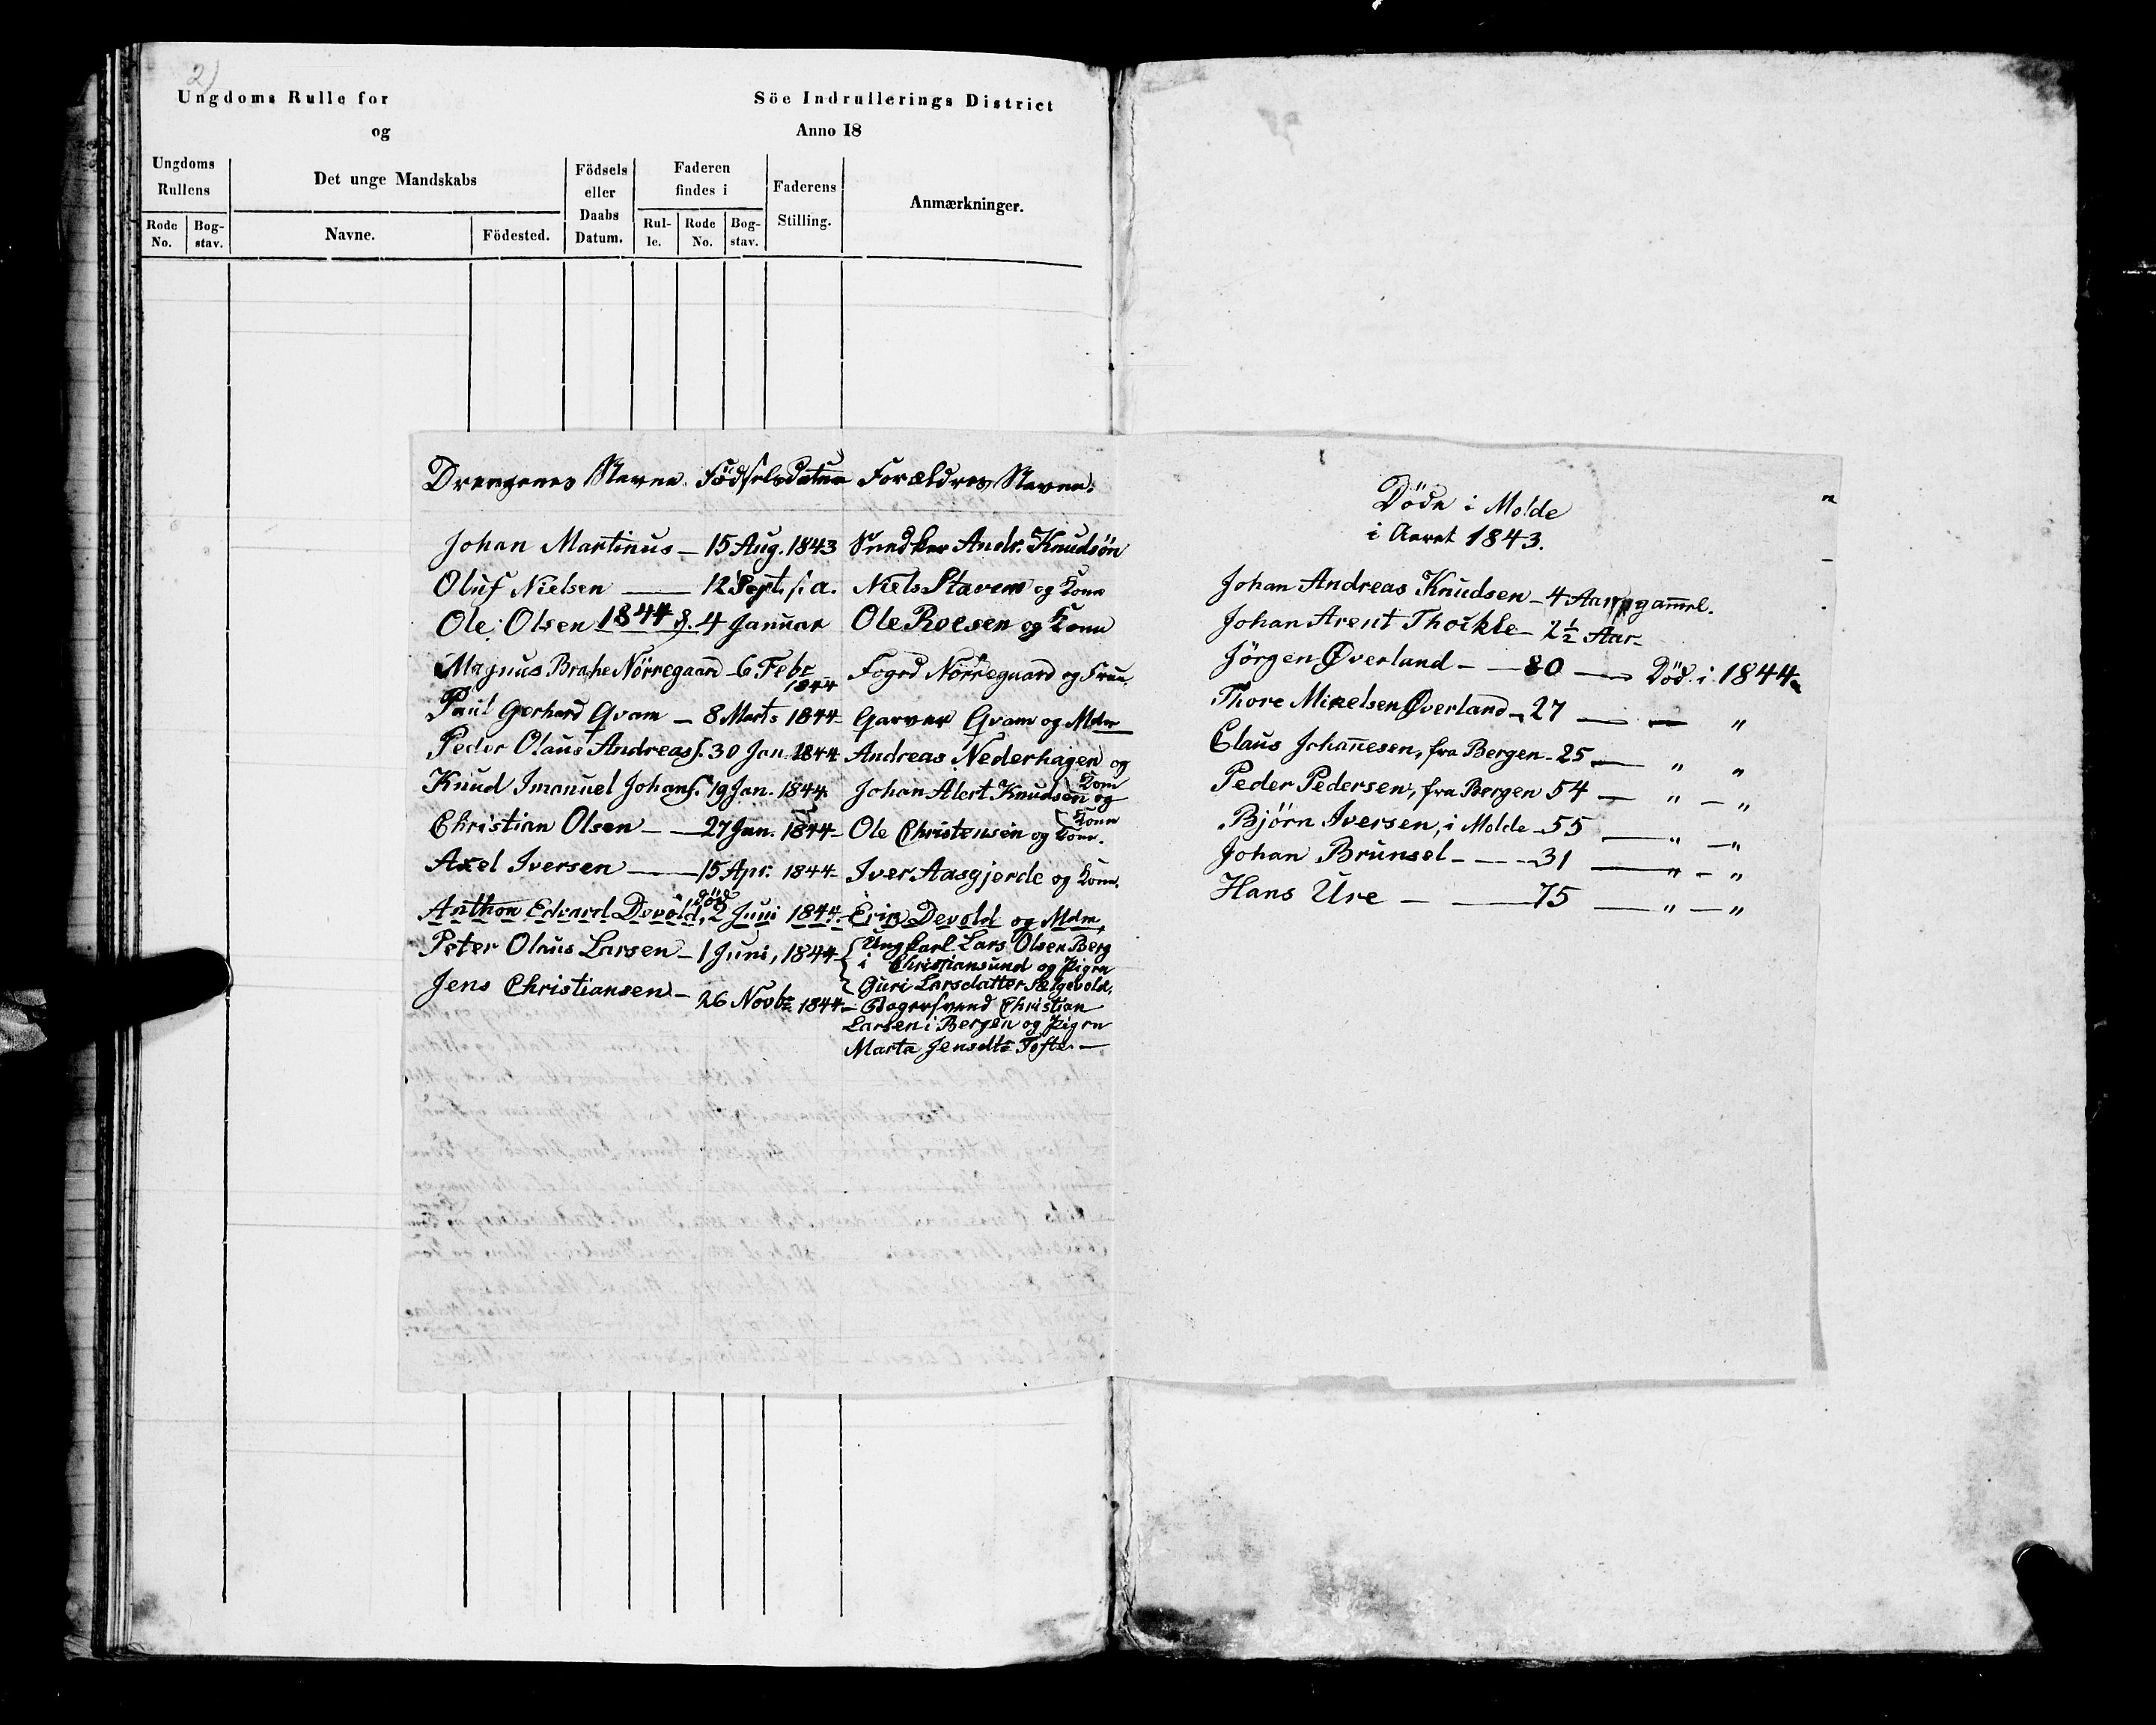 2)
Ungdoms Rulle for Söe Indrullerings District
og Anno 18
Ungdoms Rullens
Det unge Mandskabs
Födsels eller Daabs Datum.
Faderen findes i
Faderens Stilling.
Anmærkninger.
Rode No. Bog-stav. Navne. Födested. Rul-le. Rode No. Bog-stav.
Drengenes Navne. Födselsdatum Forældres Navne.
Johan Martinus — 15 Aug. 1843 Snedker Andr. Knudsön
Oluf Nielsen — 12 Sept. s. a. Niels Stavem og Kone
Ole Olsen 1844 d. 4 Januar Ole Roesen og Kone
Magnus Brahe Nörregaard - 6 Febr 1844 Fogd Nörregaard og Frue.
Paul Gerhard Qvam — 8 Marts 1844 - Garver Qvam og Mdm
Peder Olaus Andreas. 30 Jan. 1844 Andreas Nederhagen og Kone
Knud Imanuel Johans. 19 Jan. 1844. Johan Alert Knudsen og Kone
Christian Olsen — 27 Jan. 1844 - Ole Christensen og Kone.
Axel Iversen — 15 Apr. 1844 - Iver Aasgjerde og Kone.
död
Anthon Edvard Devold, 2 Juni 1844. Devold og Mdm.
Peter Olaus Larsen — 1 Juni, 1844 - Ungkarl Lars Olsen Berg
i Christiansund og Pigen
Guri Larsdatter
Jens Christiansen — 26 Novbr 1844 — Christian
Larsen i Bergen og Pigen
Marta Jensdtr Tofte. —
Döde i Molde
i Aaret 1843.
Johan Andreas Knudsen - 4 Aar gammel.
Johan Arent Thockle - 2 1/2 Aar -
Jörgen Øverland - — 80 — Död i 1844.
Thore Mikelsen Øverland - 27 — — "
Claus Johannesen, fra Bergen - 25 — " "
Peder Pedersen, fra Bergen 54 — " — "
Björn Iversen, i Molde - 55 — " — "
Johan Brunsel - — - 31 — " — "
Hans Ure — — 75 — " — "